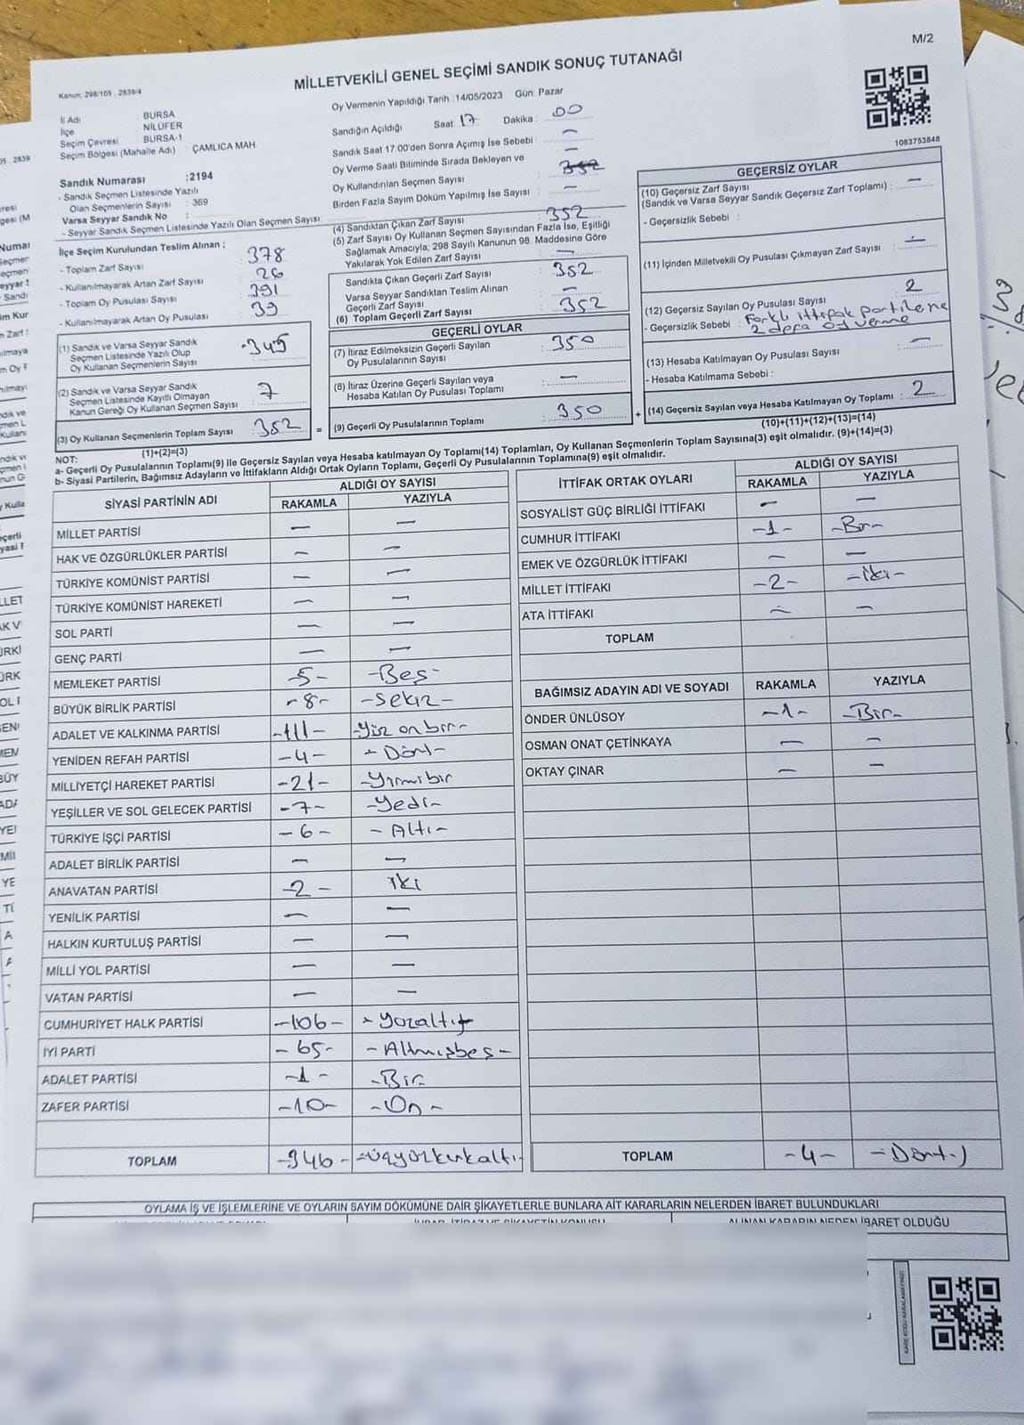 M/2
MİLLETVEKİLİ GENEL SEÇİMİ SANDIK SONUÇ TUTANAĞI
Kanun: 298/105 , 2839/4
İl Adı : BURSA
İlçe : NİLÜFER
Seçim Çevresi : BURSA-1
Seçim Bölgesi (Mahalle Adı) : ÇAMLICA MAH
Sandık Numarası : 2194
- Sandık Seçmen Listesinde Yazılı
Olan Seçmenlerin Sayısı : 369
Varsa Seyyar Sandık No :
- Seyyar Sandık Seçmen Listesinde Yazılı Olan Seçmen Sayısı :
Oy Vermenin Yapıldığı Tarih : 14/05/2023 Gün: Pazar
Sandığın Açıldığı Saat : 17 Dakika : 00
Sandık Saat 17:00'den Sonra Açılmış İse Sebebi : –
Oy Verme Saati Bitiminde Sırada Bekleyen ve
Oy Kullandırılan Seçmen Sayısı : –
Birden Fazla Sayım Döküm Yapılmış İse Sayısı : –
1083753848
İlçe Seçim Kurulundan Teslim Alınan ;
- Toplam Zarf Sayısı : 378
- Kullanılmayarak Artan Zarf Sayısı : 26
- Toplam Oy Pusulası Sayısı : 391
- Kullanılmayarak Artan Oy Pusulası : 39
(1) Sandık ve Varsa Seyyar Sandık
Seçmen Listesinde Yazılı Olup
Oy Kullanan Seçmenlerin Sayısı : 345
(2) Sandık ve Varsa Seyyar Sandık
Seçmen Listesinde Kayıtlı Olmayan
Kanun Gereği Oy Kullanan Seçmen Sayısı : 7
(3) Oy Kullanan Seçmenlerin Toplam Sayısı : 352
(1)+(2)=(3)
(4) Sandıktan Çıkan Zarf Sayısı : 352
(5) Zarf Sayısı Oy Kullanan Seçmen Sayısından Fazla İse, Eşitliği
Sağlamak Amacıyla; 298 Sayılı Kanunun 98. Maddesine Göre
Yakılarak Yok Edilen Zarf Sayısı : –
Sandıkta Çıkan Geçerli Zarf Sayısı : 352
Varsa Seyyar Sandıktan Teslim Alınan
Geçerli Zarf Sayısı : –
(6) Toplam Geçerli Zarf Sayısı : 352
GEÇERLİ OYLAR
(7) İtiraz Edilmeksizin Geçerli Sayılan
Oy Pusulalarının Sayısı : 350
(8) İtiraz Üzerine Geçerli Sayılan veya
Hesaba Katılan Oy Pusulası Toplamı : –
(9) Geçerli Oy Pusulalarının Toplamı : 350
GEÇERSİZ OYLAR
(10) Geçersiz Zarf Sayısı
(Sandık ve Varsa Seyyar Sandık Geçersiz Zarf Toplamı) : –
- Geçersizlik Sebebi :
(11) İçinden Milletvekili Oy Pusulası Çıkmayan Zarf Sayısı : –
(12) Geçersiz Sayılan Oy Pusulası Sayısı : 2
- Geçersizlik Sebebi : Farklı ittifak partilerine
2 defa oy verme
(13) Hesaba Katılmayan Oy Pusulası Sayısı : –
- Hesaba Katılmama Sebebi :
(14) Geçersiz Sayılan veya Hesaba Katılmayan Oy Toplamı : 2
(10)+(11)+(12)+(13)=(14)
NOT:
a- Geçerli Oy Pusulalarının Toplamı(9) ile Geçersiz Sayılan veya Hesaba katılmayan Oy Toplamı(14) Toplamları, Oy Kullanan Seçmenlerin Toplam Sayısına(3) eşit olmalıdır. (9)+(14)=(3)
b- Siyasi Partilerin, Bağımsız Adayların ve İttifakların Aldığı Ortak Oyların Toplamı, Geçerli Oy Pusulalarının Toplamına(9) eşit olmalıdır.
SİYASİ PARTİNİN ADI ALDIĞI OY SAYISI
RAKAMLA YAZIYLA
MİLLET PARTİSİ – –
HAK VE ÖZGÜRLÜKLER PARTİSİ – –
TÜRKİYE KOMÜNİST PARTİSİ – –
TÜRKİYE KOMÜNİST HAREKETİ – –
SOL PARTİ – –
GENÇ PARTİ – –
MEMLEKET PARTİSİ -5- -Beş-
BÜYÜK BİRLİK PARTİSİ -8- -Sekiz-
ADALET VE KALKINMA PARTİSİ -111- -Yüz on bir-
YENİDEN REFAH PARTİSİ -4- -Dört-
MİLLİYETÇİ HAREKET PARTİSİ -21- -Yirmi bir
YEŞİLLER VE SOL GELECEK PARTİSİ -7- -Yedi-
TÜRKİYE İŞÇİ PARTİSİ -6- -Altı-
ADALET BİRLİK PARTİSİ – –
ANAVATAN PARTİSİ -2- İki
YENİLİK PARTİSİ – –
HALKIN KURTULUŞ PARTİSİ – –
MİLLİ YOL PARTİSİ – –
VATAN PARTİSİ – –
CUMHURİYET HALK PARTİSİ -106- -Yüzaltı-
İYİ PARTİ -65- -Altmışbeş-
ADALET PARTİSİ -1- -Bir-
ZAFER PARTİSİ -10- -On-
TOPLAM -346- -üçyüzkırkaltı-
İTTİFAK ORTAK OYLARI ALDIĞI OY SAYISI
RAKAMLA YAZIYLA
SOSYALİST GÜÇ BİRLİĞİ İTTİFAKI – –
CUMHUR İTTİFAKI -1- -Bir-
EMEK VE ÖZGÜRLÜK İTTİFAKI – –
MİLLET İTTİFAKI -2- -iki-
ATA İTTİFAKI – –
TOPLAM
BAĞIMSIZ ADAYIN ADI VE SOYADI RAKAMLA YAZIYLA
ÖNDER ÜNLÜSOY -1- -Bir-
OSMAN ONAT ÇETİNKAYA – –
OKTAY ÇINAR – –
TOPLAM -4- -Dört-
OYLAMA İŞ VE İŞLEMLERİNE VE OYLARIN SAYIM DÖKÜMÜNE DAİR ŞİKAYETLERLE BUNLARA AİT KARARLARIN NELERDEN İBARET BULUNDUKLARI
ALINAN KARARIN NEDEN İBARET OLDUĞU